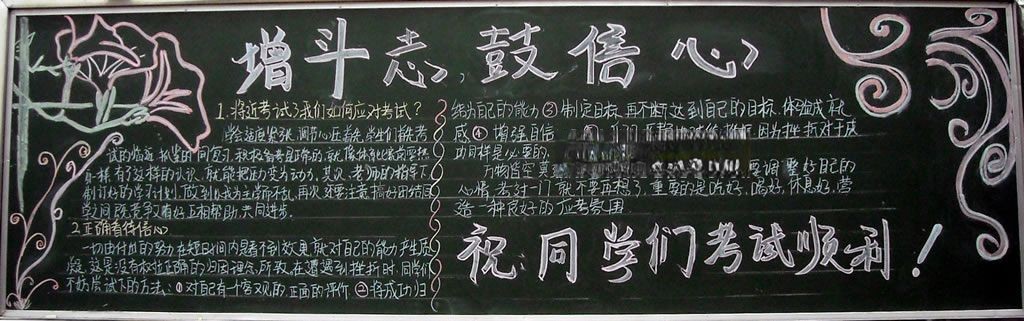 增斗志，鼓信心
1.将近考试了我们如何应对考试？
学会适度紧张，调节心理
试的临近
有了这样的认识，就能把压力变为动力，其次，老师的指导下
制订好的学习计划，做到以我为主学而不乱，再次还要注意搞好团结同
学之间既竞争又看好互相帮助，共同进步。
2.正确看待信心
一切由付出的努力在短时间内是看不到效果，就对自己的能力产生质
疑，这是没有树立正确的归因理念，所致，在遭遇到挫折时，同学们
不妨尝试下的方法：①对自己有一个客观的正面的评价②将成功归
结为自己的能力③制定目标，再不断达到自己的目标，体验成就
感④增强自信 因为挫折对于成
功同样是必要的
万物皆空 要调整好自己的
心情，考过一门就不要再想了，重要的是吃好，喝好，休息好，营
造一种良好的应考氛围
祝：同学们考试顺利！